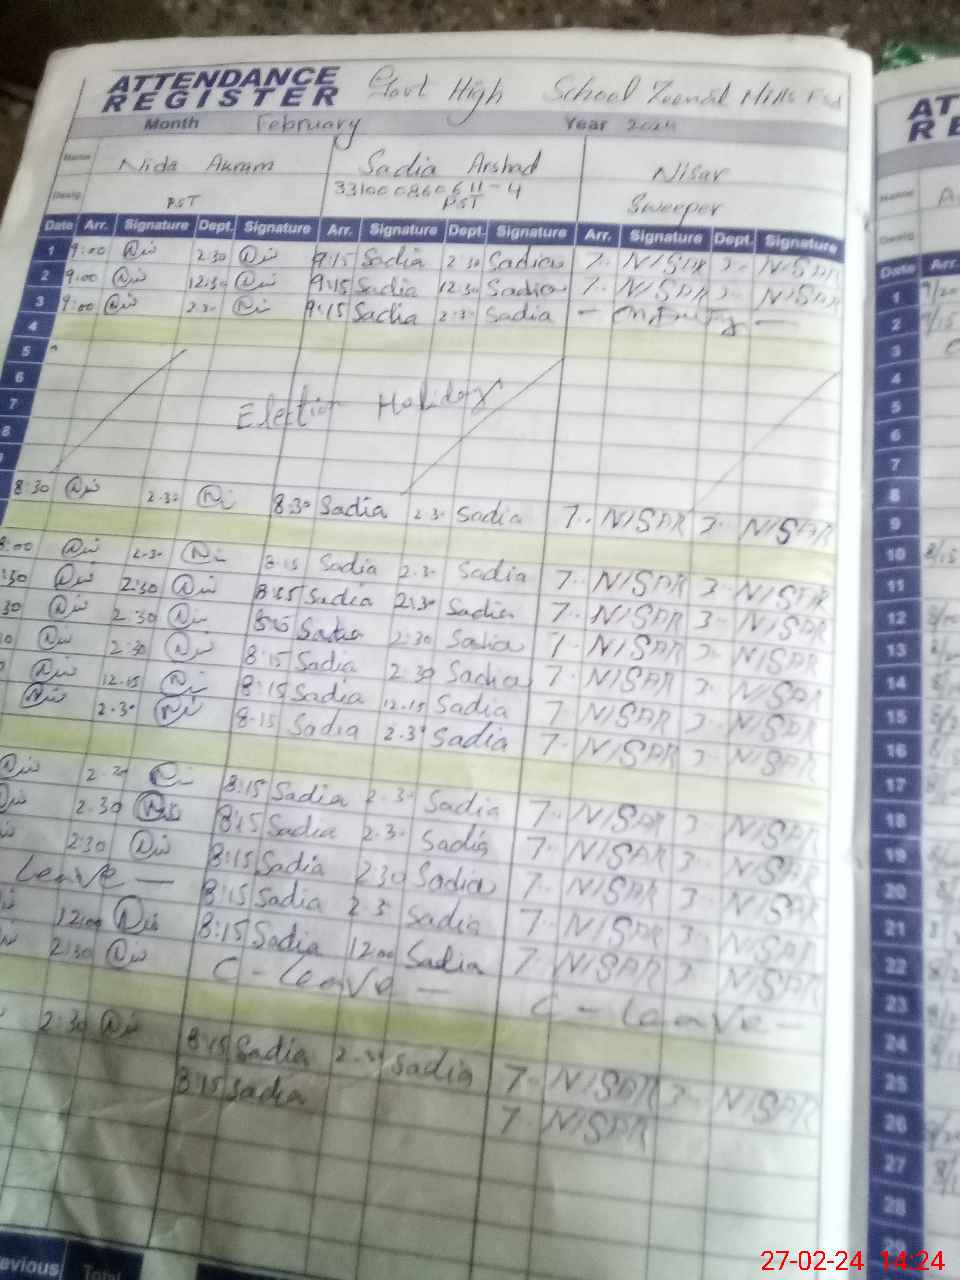 ATTENDANCE REGISTER Govt High School Mills Fsd
Month February Year 2024
Name Nida Akram Sadia Arshad Nisar
33100 0860611-4
Desig. PST PST Sweeper
Date Arr. Signature Dept. Signature Arr. Signature Dept. Signature Arr. Signature Dept. Signature
1 9:00 2.30 9:15 Sadia 2.30 Sadia 7- NISAR 3- NISAR
2 9:00 12.30 9:15 Sadia 12.30 Sadia 7- NISAR 3- NISAR
3 9:00 2.30 9:15 Sadia 2.30 Sadia - on Duty -
4
5
6
7 Election Holidays
8
8:30 2.30 8:30 Sadia 2.30 Sadia 7- NISAR 3- NISAR
:00 2.30 8:15 Sadia 2.30 Sadia 7- NISAR 3- NISAR
:30 2:30 8:15 Sadia 2:30 Sadia 7- NISAR 3- NISAR
30 2:30 Sadia 2:30 Sadia 7- NISAR 3- NISAR
2:30 8:15 Sadia 2.30 Sadia 7- NISAR 3- NISAR
12.15 8:15 Sadia 12.15 Sadia 7- NISAR 3- NISAR
2.30 8.15 Sadia 2.30 Sadia 7- NISAR 3- NISAR
2.30 8:15 Sadia 2.30 Sadia 7- NISAR 3- NISAR
2.30 8:15 Sadia 2.30 Sadia 7- NISAR 3- NISAR
2:30 8:15 Sadia 2.30 Sadia 7- NISAR 3- NISAR
Leave - 8:15 Sadia 2.3 Sadia 7- NISAR 3- NISAR
12:00 8:15 Sadia 12:00 Sadia 7- NISAR 3- NISAR
2:30 C-Leave - C-Leave -
2:30 8:15 Sadia 2.30 Sadia 7- NISAR 3- NISAR
8:15 Sadia 7- NISAR
evious Total
AT
RE
Name
Desig.
Date Arr.
1
2
3
4
5
6
7
8
9
10
11
12
13
14
15
16
17
18
19
20
21
22
23
24
25
26
27
28
29
27-02-24 14:24